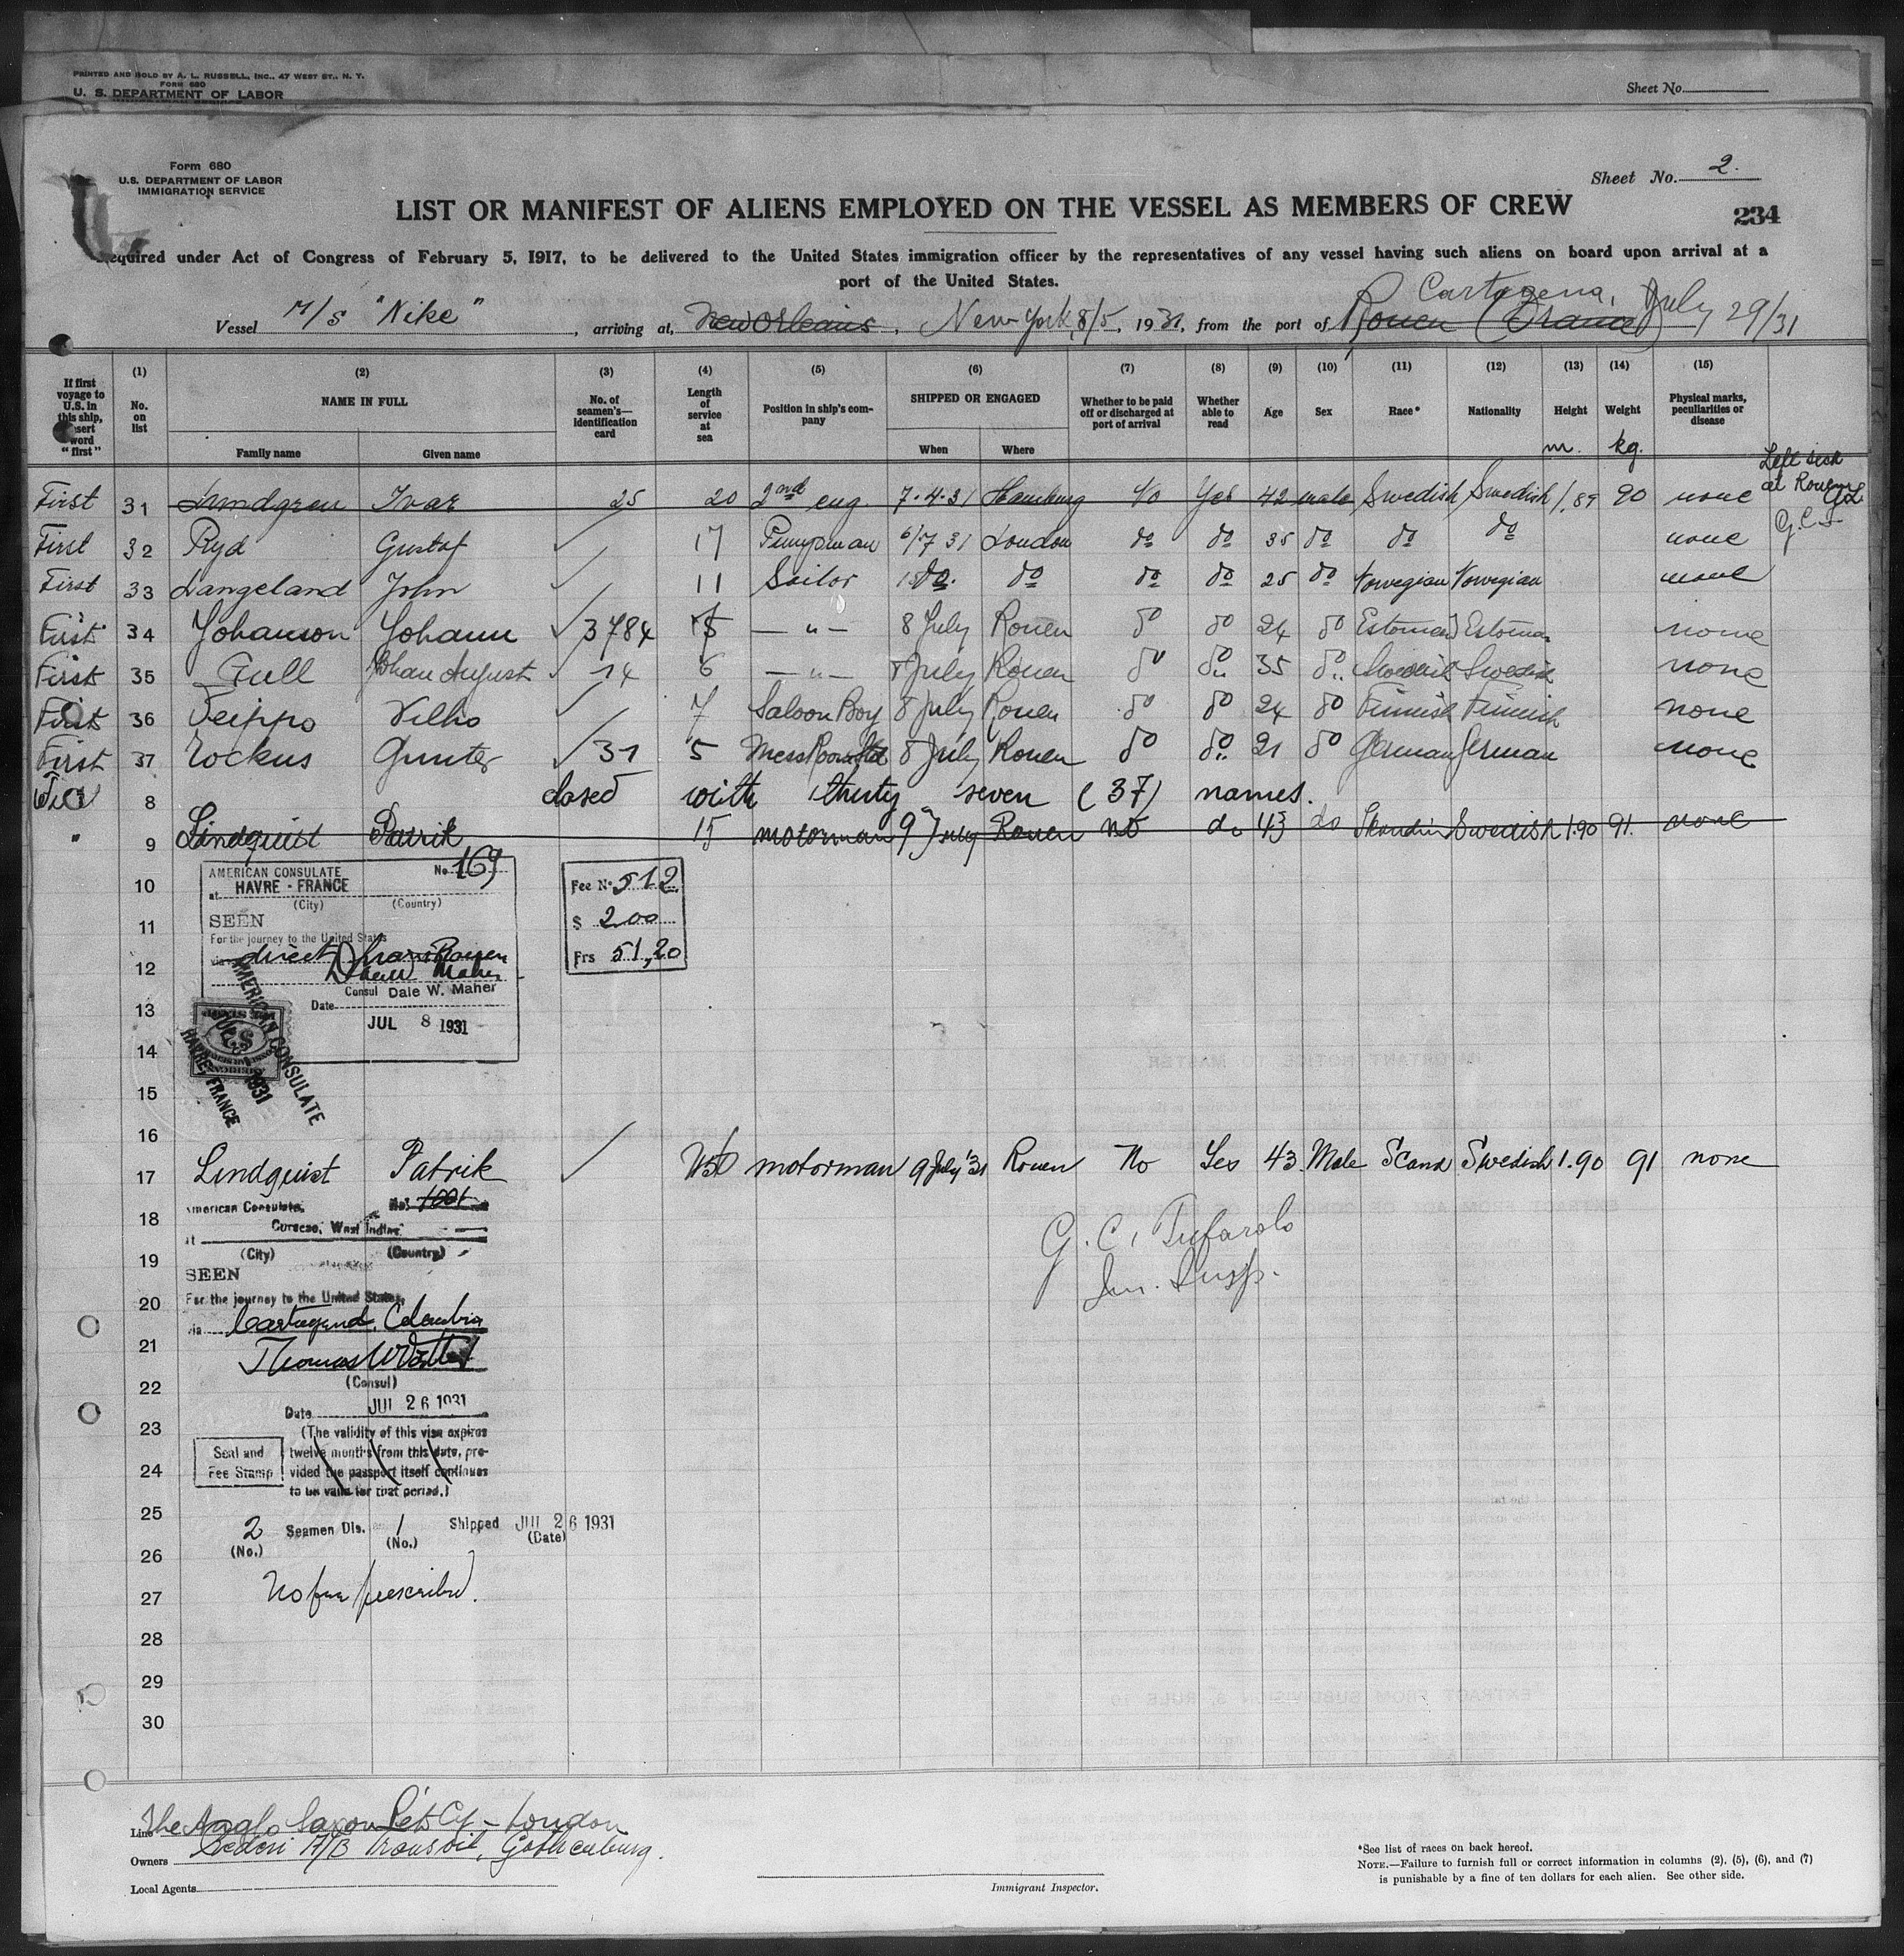 PRINTED AND SOLD BY A. L. RUSSELL, INC., 47 WEST ST., N. Y.
FORM 680
U. S. DEPARTMENT OF LABOR
IMMIGRATION SERVICE
Sheet No.
Form 680
U.S. DEPARTMENT OF LABOR
IMMIGRATION SERVICE
Sheet No. 2.
LIST OR MANIFEST OF ALIENS EMPLOYED ON THE VESSEL AS MEMBERS OF CREW
234
Required under Act of Congress of February 5, 1917, to be delivered to the United States immigration officer by the representatives of any vessel having such aliens on board upon arrival at a
port of the United States.
Cartagena, July 29/31
Vessel M/S "Nike", arriving at, New Orleans, New York, 8/5, 1931, from the port of Rouen (France)
If first voyage to U.S. in this ship, insert word "first"
(1) No. on list
(2) NAME IN FULL
Family name Given name
(3) No. of seamen's identification card
(4) Length of service at sea
(5) Position in ship's company
(6) SHIPPED OR ENGAGED
When Where
(7) Whether to be paid off or discharged at port of arrival
(8) Whether able to read
(9) Age
(10) Sex
(11) Race*
(12) Nationality
(13) Height m.
(14) Weight kg.
(15) Physical marks, peculiarities or disease
First 31 Lundgren Ivar 25 20 2nd eng. 7.4.31 Hamburg No Yes 42 male Swedish Swedish 1.89 90 none
Left sick at Rouen
G.C.T.
First 32 Ryd Gustaf 17 Pumpman 6/7 31 London do do 35 do do do none
First 33 Langeland John 11 Sailor do. do do do 25 do Norwegian Norwegian none
First 34 Johanson Johann 3784 15 — " — 8 July Rouen do do 24 do Estonian Estonian none
First 35 Gull Johan August 14 6 — " — 8 July Rouen do do.. 35 do.. Swedish Swedish none
First 36 Seippo Vilho 7 Saloon Boy 8 July Rouen do do 24 do Finnish Finnish none
First 37 Rockus Gunter 31 5 Messroom 8 July Rouen do do.. 21 do German German none
8 closed with thirty-seven (37) names.
" 9 Lindquist Patrik 15 motorman 9 July Rouen no do 43 do Scandin Swedish 1.90 91. none
10
11
12
13
14
15
16
AMERICAN CONSULATE No. 169
at HAVRE - FRANCE
(City) (Country)
SEEN
For the journey to the United States
via direct from Rouen
Dale W. Maher
Consul Dale W. Maher
Date
JUL 8 1931
Fee No. 512
$ 2.00
Frs 51,20
AMERICAN CONSULATE
HAVRE, FRANCE
1931
17 Lindquist Patrik 15 motorman 9 July '31 Rouen No Yes 43 Male Scand Swedish 1.90 91 none
G. C. Tufarolo
Im. Insp.
18
19
20
21
22
23
24
25
26
27
28
29
30
American Consulate, No. 1001
at Curacao, West Indies
(City) (Country)
SEEN
For the journey to the United States,
via Cartagena, Colombia
(Consul)
Date JUL 26 1931
(The validity of this visa expires
twelve months from this date, pro-
vided the passport itself continues
to be valid for that period.)
Seal and
Fee Stamp
2 Seamen Dis. 1 Shipped JUL 26 1931
(No.) (No.) (Date)
No fee prescribed.
Line The Anglo Saxon Pet. Cy – London
Owners Rederi A/B Transoil, Gothenburg.
Local Agents
Immigrant Inspector.
*See list of races on back hereof.
NOTE.—Failure to furnish full or correct information in columns (2), (5), (6), and (7)
is punishable by a fine of ten dollars for each alien. See other side.